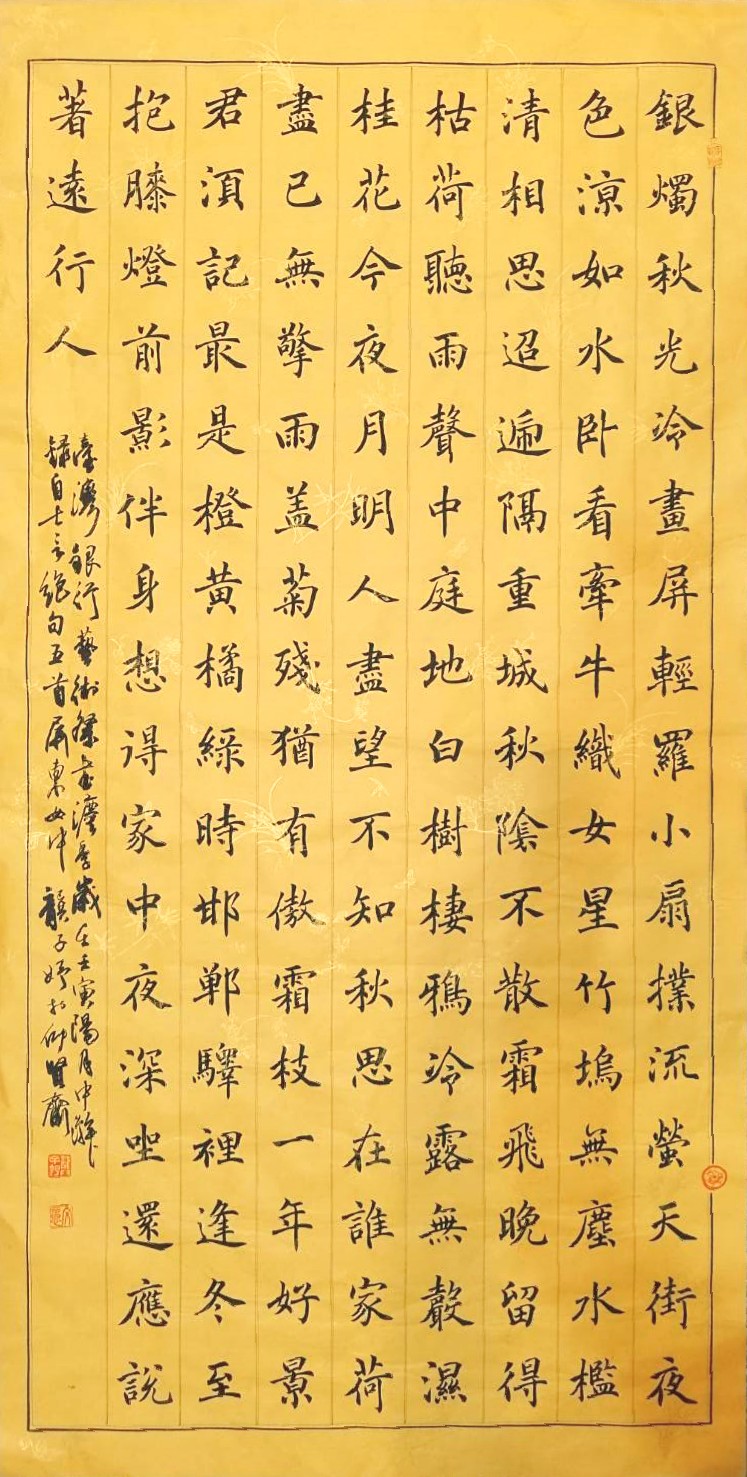 銀燭秋光冷畫屏輕羅小扇撲流螢天街夜
色涼如水卧看牽牛織女星竹塢無塵水檻
清相思迢遞隔重城秋陰不散霜飛晚留得
枯荷聽雨聲中庭地白樹棲鴉冷露無聲濕
桂花今夜月明人盡望不知秋思在誰家荷
盡已無擎雨盖菊殘猶有傲霜枝一年好景
君須記最是橙黃橘綠時邯鄲驛裡逢冬至
抱膝燈前影伴身想得家中夜深坐還應說
著遠行人
臺灣銀行藝術祭書歲壬寅陽月中澣
錄自七言絕句五首屏東女中 子於仰賢齋